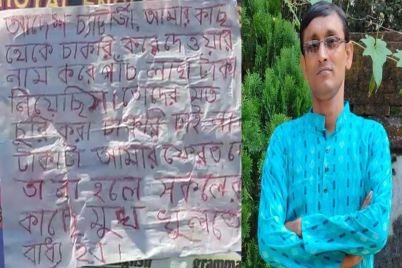 চ্যাটার্জী, আমার কাছে
থেকে চাকরি করে দেওয়ার
নাম করে পাঁচ লাখ টাকা
নিয়েছিস। তোদের মত
চুরি করা চাকরি চাই না
টাকাটা আমার ফেরত দে
তা না হলে সকলের
কাছে মুখ খুলতে
বাধ্য হব।
gramma